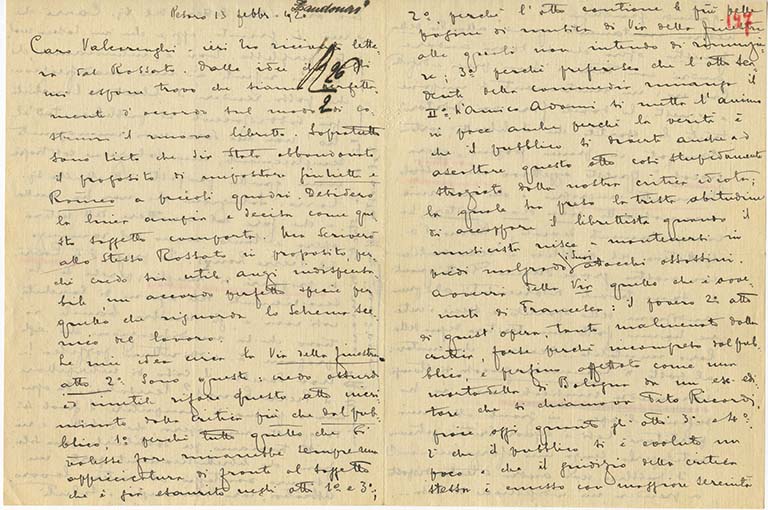 Zandonai
Pesaro 13 febbr. 920
R 26
2
Caro Valcarenghi - ieri ho ricevuto lette-
ra dal Rossato. Dalle idee
mi espone trovo che siamo perfetta-
mente d'accordo sul modo di co-
struire il nuovo libretto. Sopratutto
sono lieto che sia stato abbandonato
il proposito di impostare Giulietta e
Romeo a piccoli quadri. Desidero
la linea ampia e decisa come que-
sto soggetto comporta. Ne scriverò
allo stesso Rossato in proposito, per-
chè credo sia utile anzi indispensa-
bile un accordo perfetto specie per
quello che riguarda lo schema sce-
nico del lavoro.
Le mie idee circa la Via della finestra
atto 2º sono queste: credo assurdo
ed inutile rifare questo atto incri-
minato dalla critica più che dal pub-
blico, 1º perchè tutto quello che si
volesse fare rimarrebbe sempre una
appiccicatura di fronte al soggetto
che è già esaurito negli atti 1º e 3º;
147
2º, perchè l'atto contiene le più belle
pagine di musica di Via della finestra
alle quali non intendo di rinunzia-
re; 3º perchè preferisco che l'atto sca-
dente della commedia rimanga il
IIº. L'amico Adami si metta l'animo
in pace anche perchè la verità è
che il pubblico si diverte anche ad
ascoltare questo atto così stupidamente
straziato dalla nostra critica idiota;
la quale ha preso la triste abitudine
di accoppare il librettista quando il
musicista riesce a mantenersi in
piedi malgrado i suoi attacchi assassini.
Avverrà della Via quello che è avve-
nuto di Francesca: il povero 2º atto
di quest'opera, tanto malmenato dalla
critica, forse perchè incompreso dal pub-
blico e perfino affettato come una
mortadella di Bologna da un ex edi-
tore che si chiamava Tito Ricordi,
piace oggi quanto gli atti 3º e 4º.
È che il pubblico si è evoluto un
poco e che il giudizio della critica
stessa è emesso con maggiore serenità